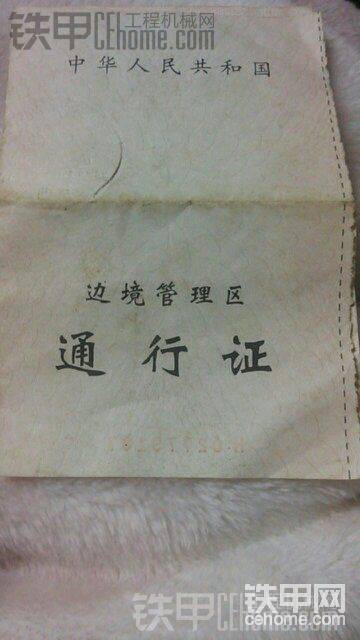 铁甲 工程机械网
CEhome.com
中华人民共和国
边境管理区
通行证
铁甲CEhome
铁甲网
cehome.com